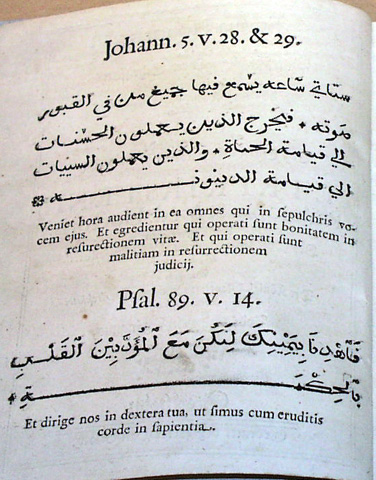 Johann. 5. v. 28. & 29.
ستاتي ساعه يسمع فيها جميع من في القبور
صوته * فيخرج الذين يعملون الحسنات
الي قيامة الحياة * والذين يعملون السيات
الي قيامة الدينونة
Veniet hora audient in ea omnes qui in sepulchris vo-
cem ejus. Et egredientur qui operati sunt bonitatem in
resurectionem vitæ. Et qui operati sunt
malitiam in resurrectionem
judicij.
Psal. 89. v. 14.
فَأَهْدِنَا بِيَمِينِكَ لِنَكُنَ مَعَ ٱلْمُؤَدَّبِينَ ٱلْقَلْبِ
بِٱلْحِكْمَةِ
Et dirige nos in dextera tua, ut simus cum eruditis
corde in sapientia.